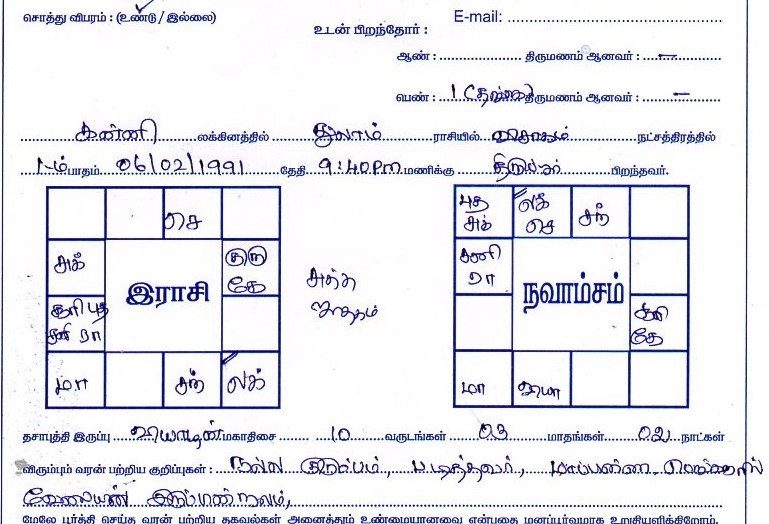 சொத்து விபரம் : (உண்டு / இல்லை)
E-mail:
உடன் பிறந்தோர் :
ஆண் : திருமணம் ஆனவர் : —
பெண் : 1 திருமணம் ஆனவர் : —
கன்னி லக்கினத்தில் துலாம் ராசியில் நட்சத்திரத்தில்
1-ம் பாதம் 06/02/1991 தேதி 9:40PM மணிக்கு பிறந்தவர்.
செ
அக்
குரு
கே
இராசி
சனி ரா
மா
சந்
லக்
சுத்த
ஜாதகம்
புத
சுக்
லக்
செ
சந்
சனி
ரா
நவாம்சம்
கே
மா
தசாபுத்தி இருப்பு மகாதிசை 10 வருடங்கள் 03 மாதங்கள் 02 நாட்கள்
விரும்பும் வரன் பற்றிய குறிப்புகள் : நல்ல குடும்பம், படித்தவர்,
மேலே பூர்த்தி செய்த வரன் பற்றிய தகவல்கள் அனைத்தும் உண்மையானவை என்பதை மனப்பூர்வமாக உறுதியளிக்கிறோம்.